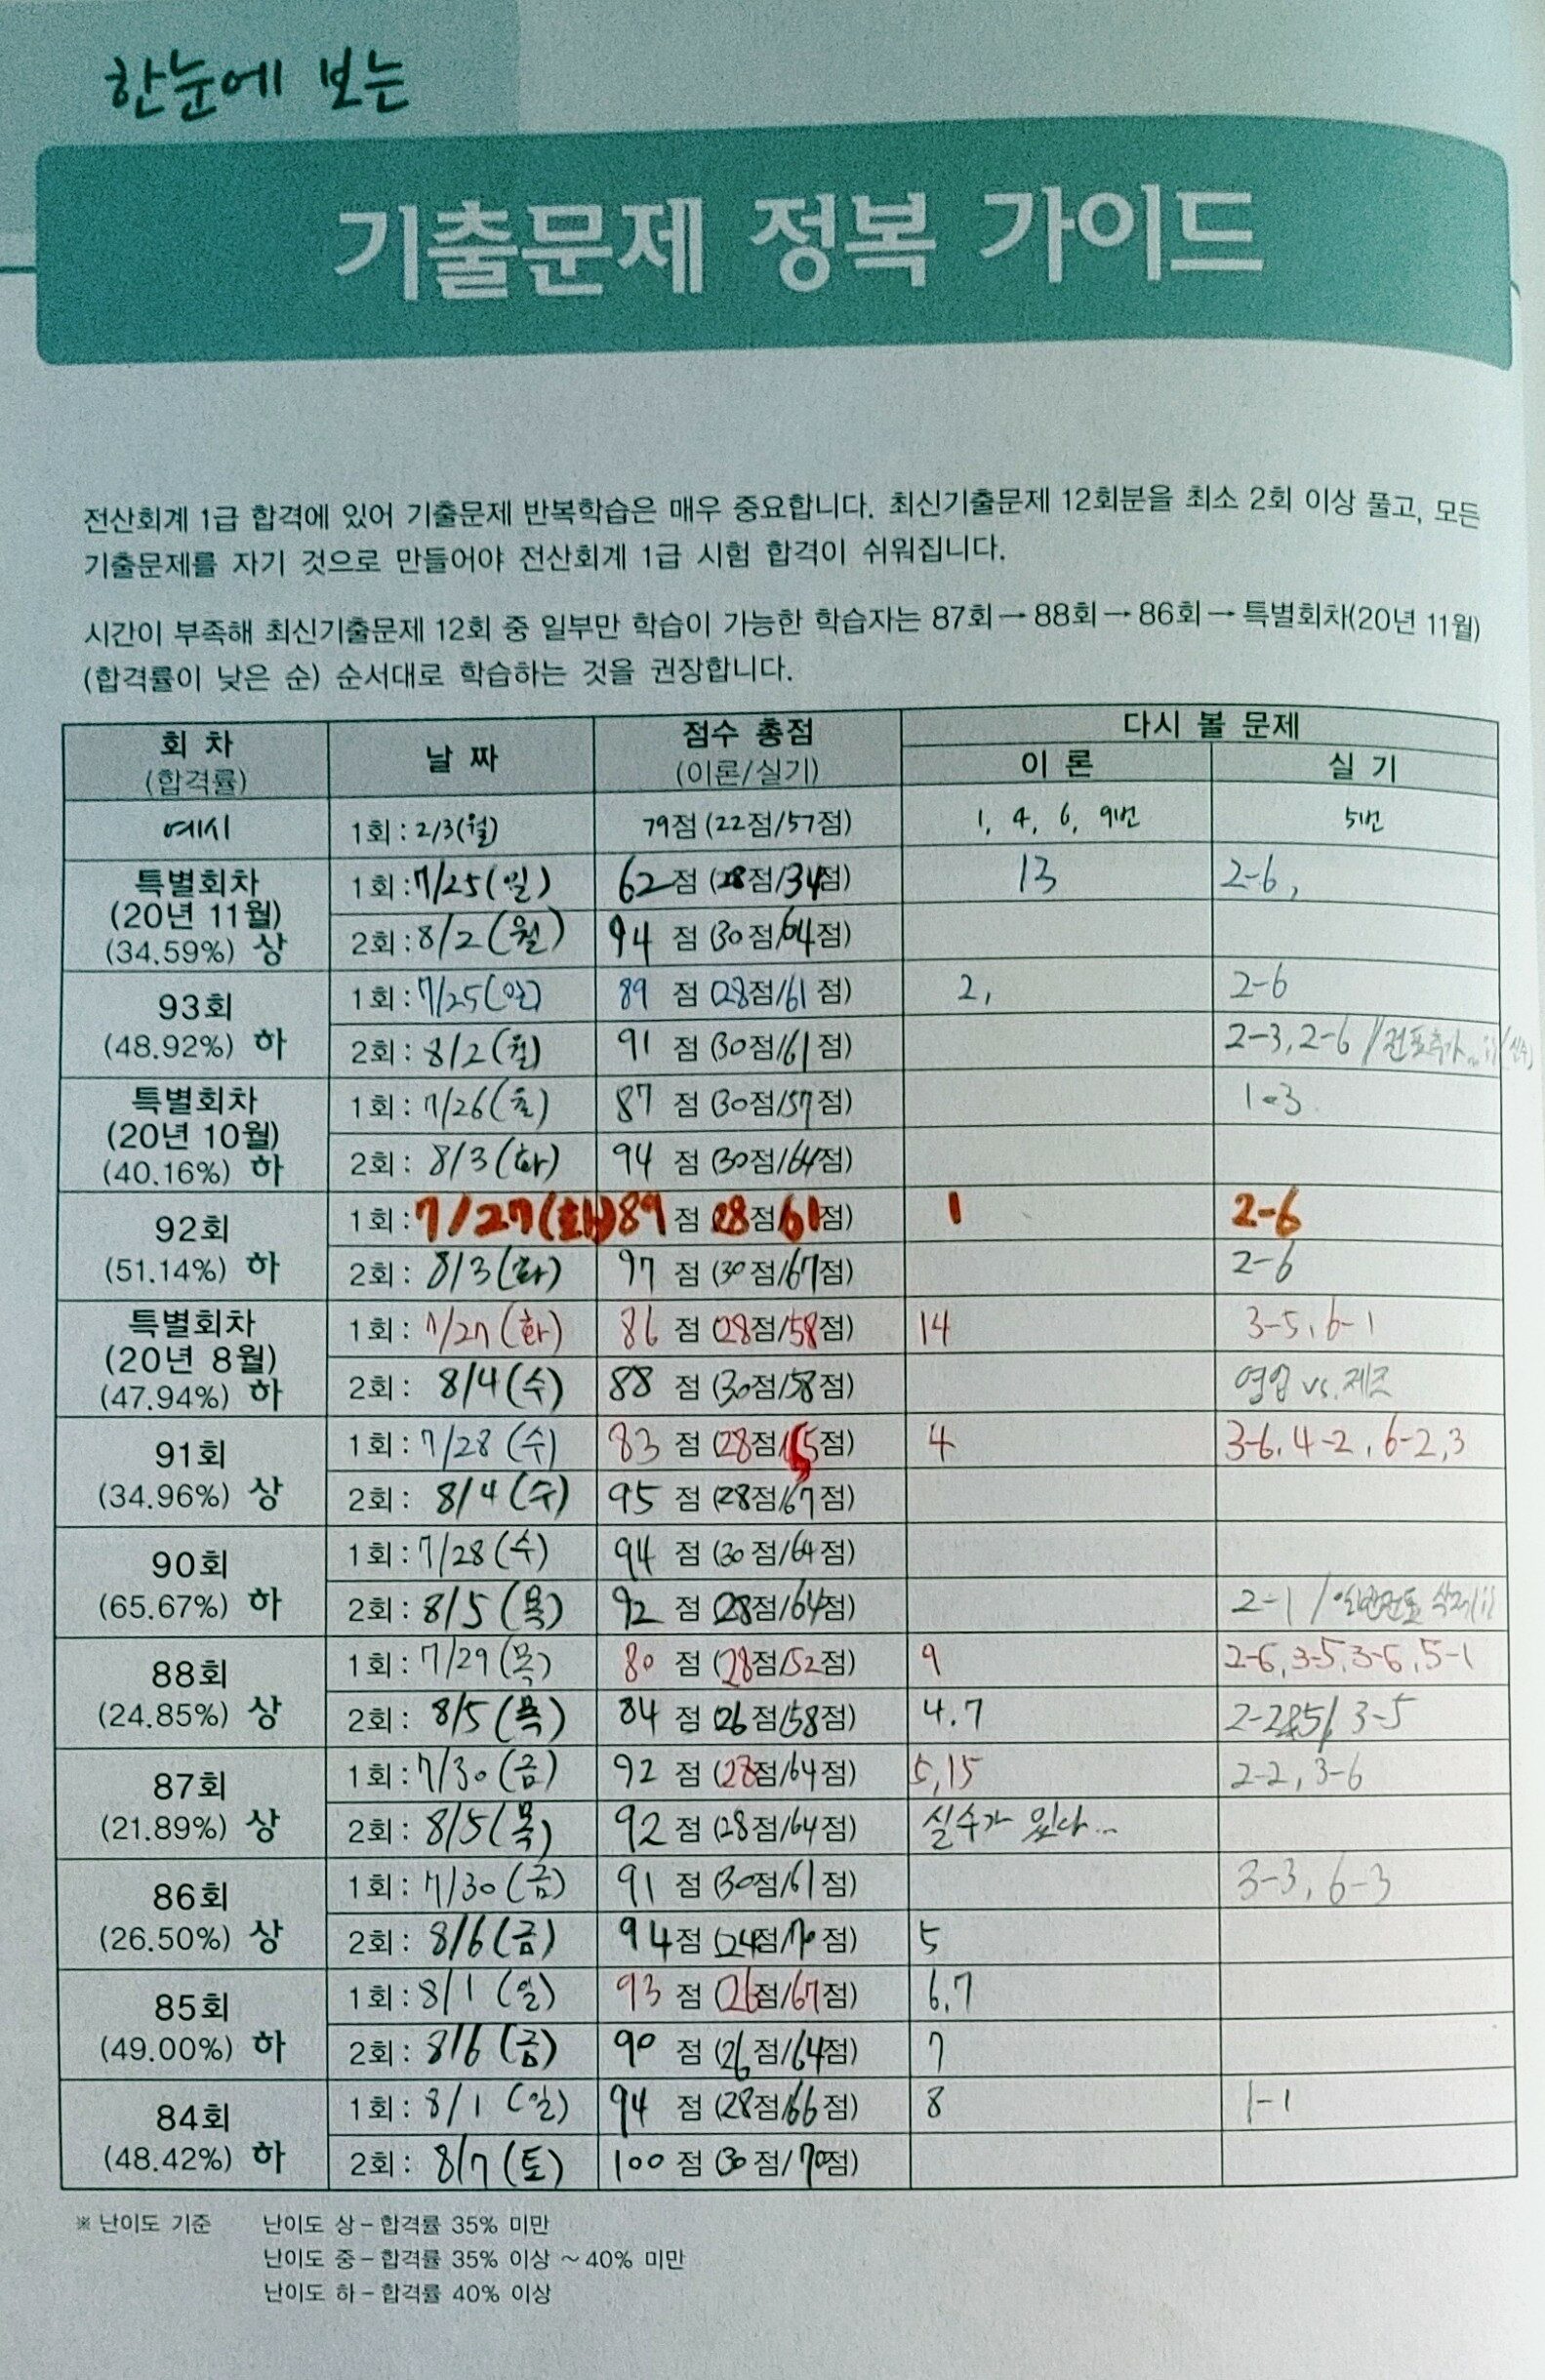 한눈에 보는
기출문제 정복 가이드
전산회계 1급 합격에 있어 기출문제 반복학습은 매우 중요합니다. 최신기출문제 12회분을 최소 2회 이상 풀고, 모든
기출문제를 자기 것으로 만들어야 전산회계 1급 시험 합격이 쉬워집니다.
시간이 부족해 최신기출문제 12회 중 일부만 학습이 가능한 학습자는 87회→88회→86회→특별회차(20년 11월)
(합격률이 낮은 순) 순서대로 학습하는 것을 권장합니다.
회 차 날 짜 점수 총점 다시 볼 문제
(합격률) (이론/실기) 이 론 실 기
예시 1회 : 2/3(월) 79점 (22점/57점) 1, 4, 6, 9번 5번
특별회차 1회 : 7/25(일) 62점 (28점/34점) 13 2-6,
(20년 11월)
(34.59%) 상 2회 : 8/2(월) 94 점 (30점/64점)
93회 1회 : 7/25(일) 89 점 (28점/61점) 2, 2-6
(48.92%) 하 2회 : 8/2(월) 91 점 (30점/61점) 2-3, 2-6 / 전표추가
특별회차 1회 : 7/26(월) 87 점 (30점/57점) 1-3
(20년 10월)
(40.16%) 하 2회 : 8/3(화) 94 점 (30점/64점)
92회 1회 : 7/27(화) 89 점 (28점/61점) 1 2-6
(51.14%) 하 2회 : 8/3(화) 97 점 (30점/67점) 2-6
특별회차 1회 : 7/27(화) 86 점 (28점/58점) 14 3-5, 6-1
(20년 8월)
(47.94%) 하 2회 : 8/4(수) 88 점 (30점/58점) 영업 vs. 제조
91회 1회 : 7/28(수) 83 점 (28점/ 점) 4 3-6, 4-2, 6-2,3
(34.96%) 상 2회 : 8/4(수) 95 점 (28점/67점)
90회 1회 : 7/28(수) 94 점 (30점/64점)
(65.67%) 하 2회 : 8/5(목) 92 점 (28점/64점) 2-1 / 일반전표 삭제
88회 1회 : 7/29(목) 80 점 (28점/52점) 9 2-6, 3-5, 3-6, 5-1
(24.85%) 상 2회 : 8/5(목) 84 점 (26점/58점) 4.7 2-2&5/ 3-5
87회 1회 : 7/30(금) 92 점 (28점/64점) 5,15 2-2, 3-6
(21.89%) 상 2회 : 8/5(목) 92 점 (28점/64점) 실수가 있다...
86회 1회 : 7/30(금) 91 점 (30점/61점) 3-3, 6-3
(26.50%) 상 2회 : 8/6(금) 94점 (24점/70점) 5
85회 1회 : 8/1(일) 93 점 (26점/67점) 6,7
(49.00%) 하 2회 : 8/6(금) 90 점 (26점/64점) 7
84회 1회 : 8/1(일) 94 점 (28점/66점) 8 1-1
(48.42%) 하 2회 : 8/7(토) 100 점 (30점/70점)
※ 난이도 기준 난이도 상 – 합격률 35% 미만
난이도 중 – 합격률 35% 이상 ~ 40% 미만
난이도 하 – 합격률 40% 이상